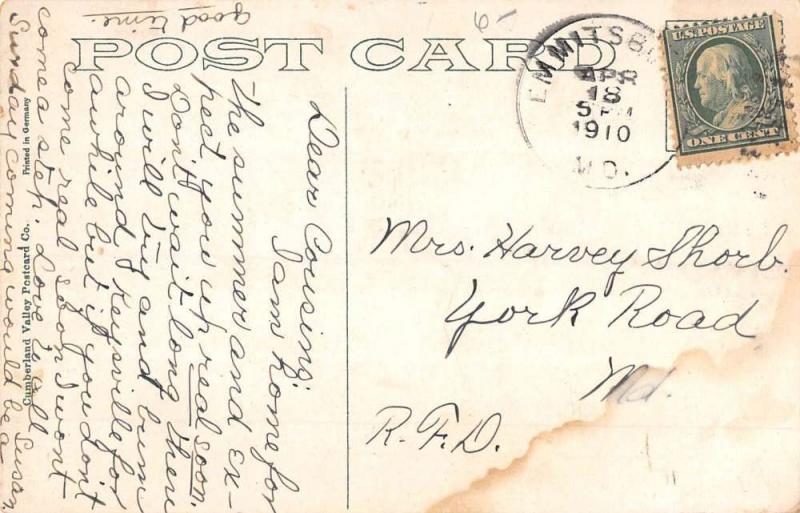 POST CARD
EMMITSBU
APR
18
5 PM
1910
MD.
U.S. POSTAGE
ONE CENT
Mrs. Harvey Shorb.
York Road
Md.
R.F.D.
Dear Cousing:
I am home for
the summer and ex-
pect you up real soon.
Don't wait long then
I will try and bum
around Keysville for
awhile but if you don't
come real soon I wont
come a step. Love to all
Susan.
Sunday coming would be a
good time.
Cumberland Valley Postcard Co.
Printed in Germany